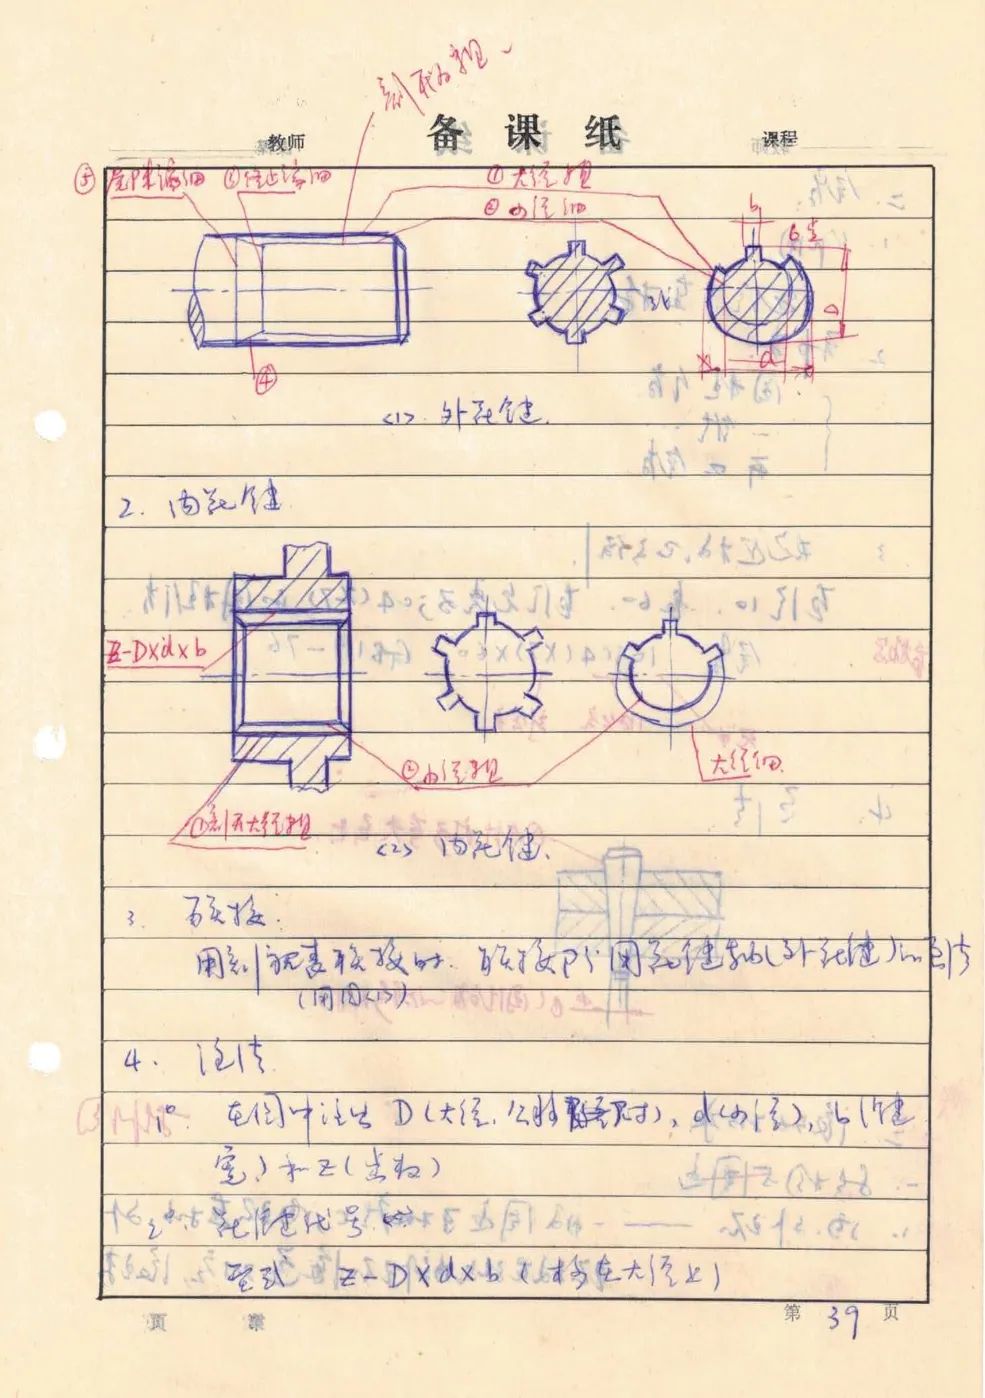 剖开为粗
教师 备课纸 课程
③尾部末端细 ③终止端细 ①大径粗
②小径细
b
6齿
或
D
④
d
<1> 外花键.
2. 内花键
Z-D×d×b
②小径粗
大径细
①剖开大径粗
<2> 内花键.
3. 联接:
用剖视表联接时. 联接部分用花键轴(外花键)的画法
(用图<1>)
4. 注法
1° 在图中注出 D(大径,), d(小径), b(键
宽) 和 Z(齿数)
2° 花键代号
型式 Z-D×d×b (标在大径上)
第 39 页